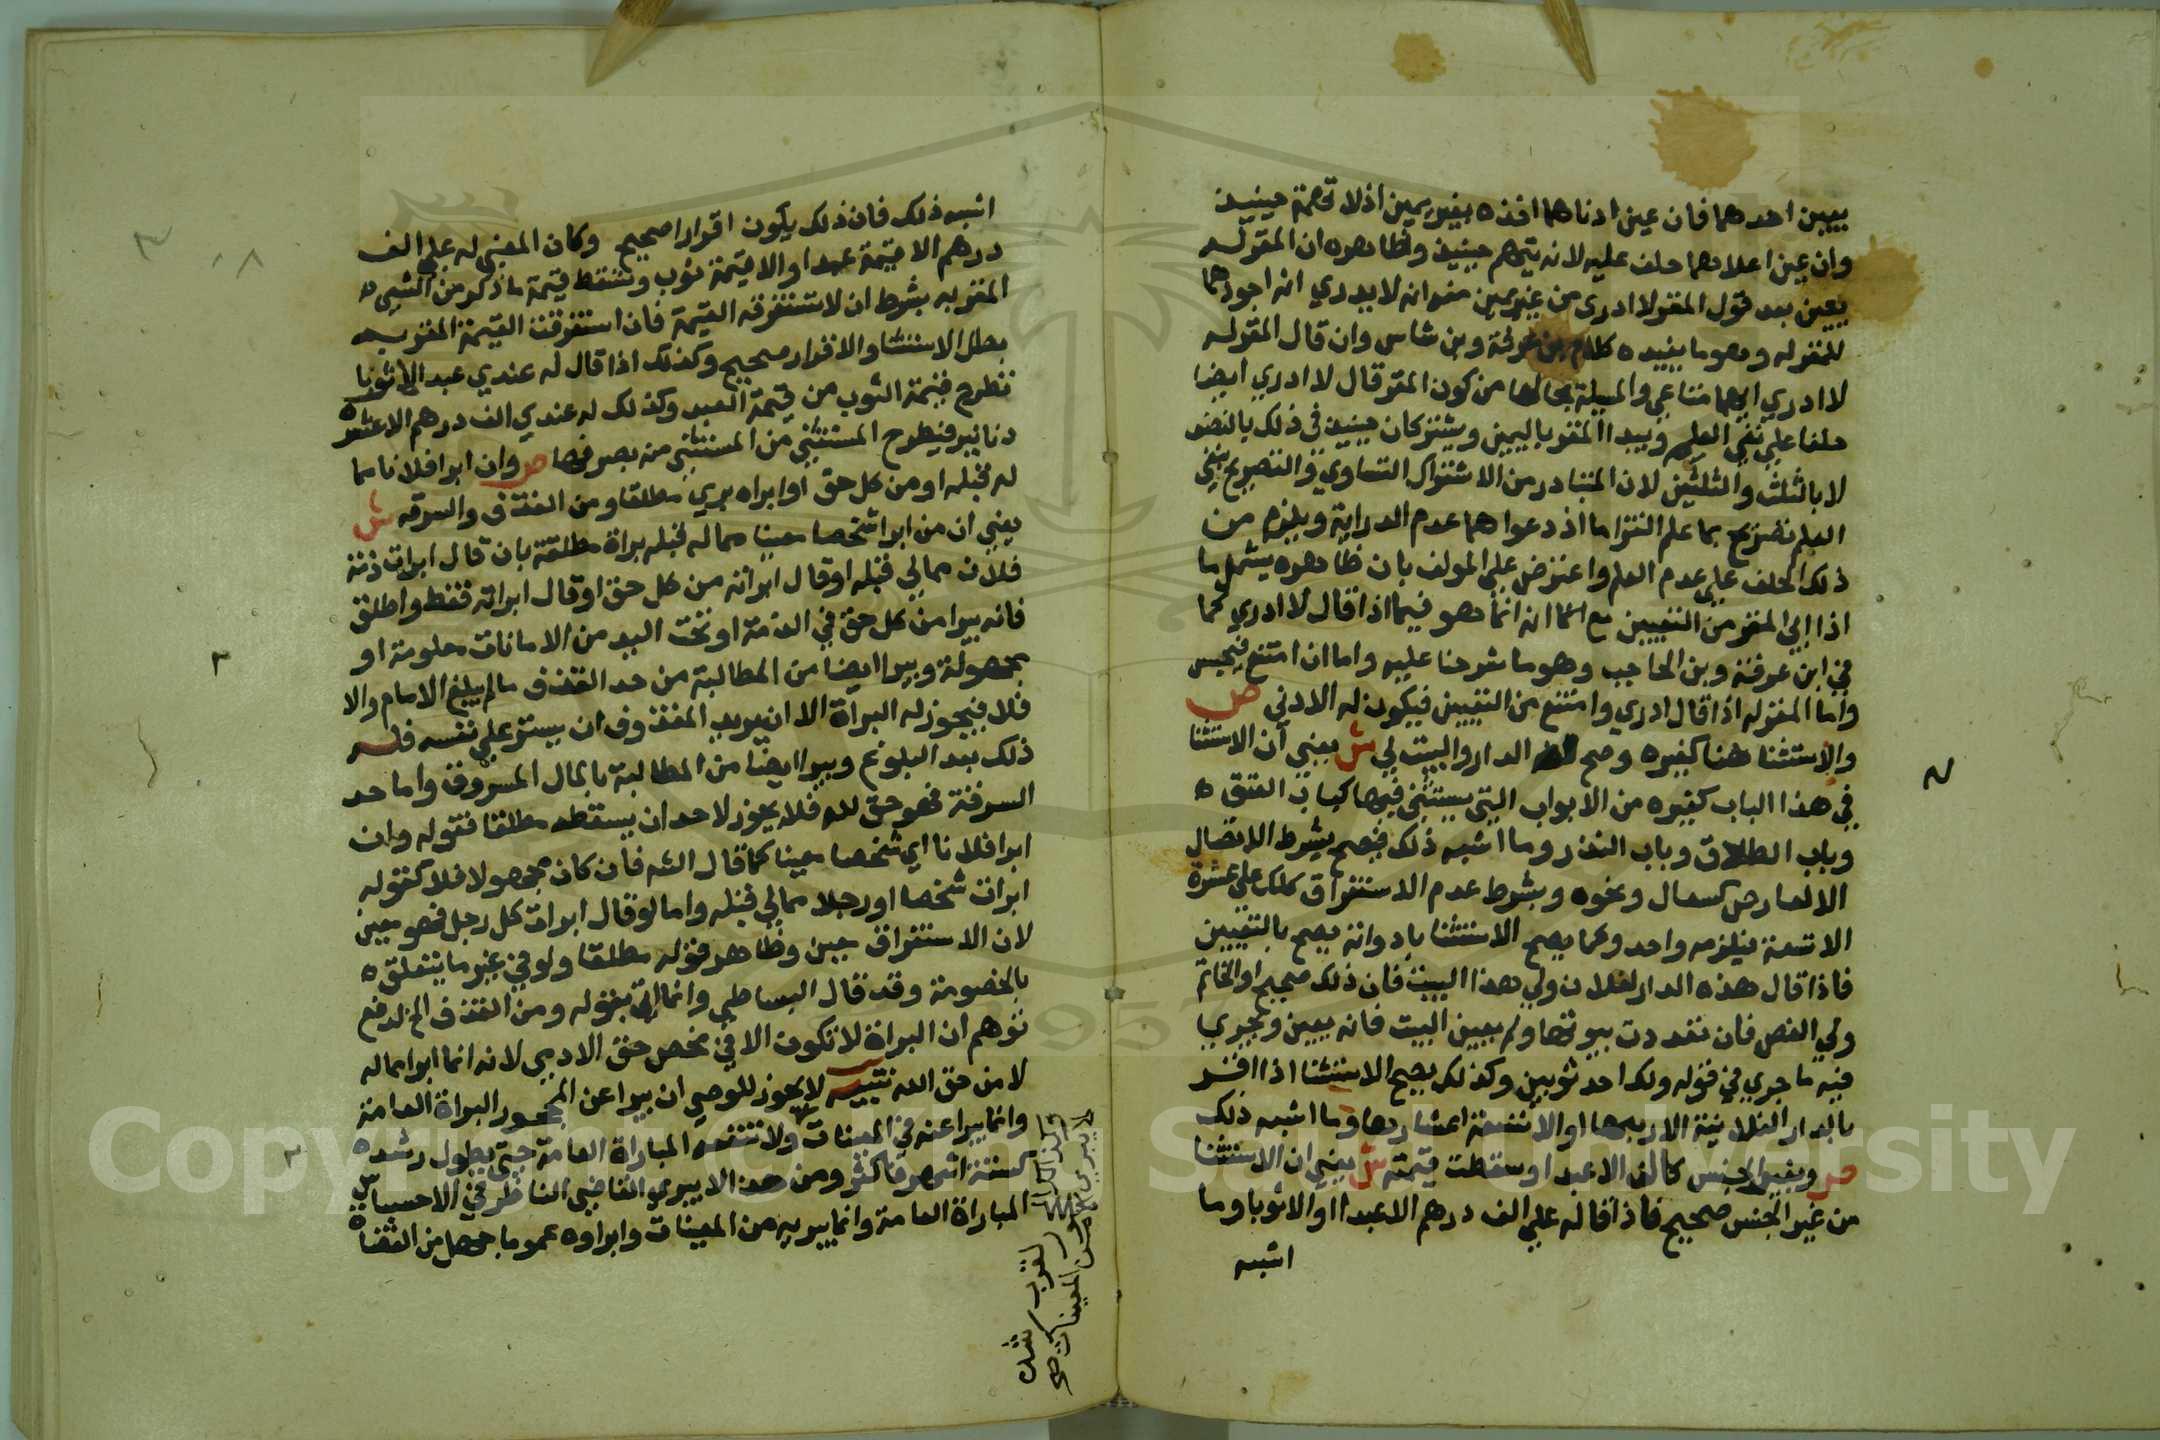 يبين احدهما فان عين ادناهما اخذه بغير يمين اذ لا تهمة حينيذ
وان عين اعلاهما حلف عليه لانه يتهم حينيذ وظاهره ان المقر له
يعين بعد قول المقر لا ادري من غير يمين منه انه لا يدري انه اجودهما
للمقر له وهو ما يفيده كلام بن عرفة وبن شاس وان قال المقر له
لا ادري ايهما متاعي والمسيلة بحالها من كون المقر قال لا ادري ايضا
حلفا علي نفي العلم ويبدا المقر باليمين ويشتركان حينيذ في ذلك بالنصف
لا بالثلث والثلثين لان المتبادر من الاشتراك التساوي والتصريح بنفي
العلم تصريح بما علم التزاما اذ دعواهما عدم الدراية ويلزم من
ذلك الحلف علي عدم العلم واعترض علي المولف بان ظاهره يشمل ما
اذا ابي المقر من التعيين مع انما هو فيما اذا قال لا ادري كما
في ابن عرفة وبن الحاجب وهو ما شرحنا عليه واما ان امتنع فيحبس
واما المقر له اذا قال ادري وامتنع من التعيين فيكون له الادني ص
والاستثنا هنا كغيره وصح له الدار والبيت لي ش يعني ان الاستثنا
في هذا الباب كغيره من الابواب التي يستثني فيها كباب العتق
وباب الطلاق وباب النذر وما اشبه ذلك فيصح بشرط الاتصال
الا لعارض كسعال ونحوه وبشرط عدم الاستغراق كلك علي عشرة
الا تسعة فيلزمه واحد وكما يصح الاستثنا بادواته يصح بالتعيين
فاذا قال هذه الدار لفلان ولي هذا البيت فان ذلك صحيح او الخاتم
ولي الفص فان تعددت بيوتها ولم يعين البيت فانه يعين ويجري
فيه ما جري في قوله ولك احد ثوبين وكذلك يصح الاستثنا اذا اقر
بالدار الفلانية الا ربعها او الا تسعة اعشارها وما اشبه ذلك
ص وبغير الجنس كالف الا عبدا وسقطت قيمته ش يعني ان الاستثنا
من غير الجنس صحيح فاذا قال له علي الف درهم الا عبدا او الا ثوبا وما
اشبه
اشبه ذلك فان ذلك يكون اقرارا صحيح وكان المعني له علي الف
درهم الا قيمة عبد او الا قيمة ثوب وتسقط قيمة ما ذكر من الشيء
المقر به بشرط ان لا تستغرقه القيمة فان استغرقت القيمة المقر به
بطل الاستثنا والاقرار صحيح وكذلك اذا قال له عندي عبد الا ثوبا
تطرح قيمة الثوب من قيمة العبد وكذلك له عندي الف درهم الا عشرة
دنانير فيطرح المستثني من المستثني منه بصرفها ص وان ابرا فلانا مما
له قبله او من كل حق او ابراه بري مطلقا ومن القذف والسرقة ش
يعني ان من ابرا شخصا معينا مما له قبله براة مطلقة بان قال ابرات ذمة
فلان مما لي قبله او قال ابراته من كل حق او قال ابراته فقط واطلق
فانه يبرا من كل حق في الذمة او تحت اليد من الامانات معلومة او
مجهولة ويبرا ايضا من المطالبة من حد القذف ما لم يبلغ الامام والا
فلا فيجوز له البراة الا ان يريد المقذوف ان يستر علي نفسه فله
ذلك بعد البلوغ ويبرا ايضا من المطالبة بالمال المسروق واما حد
السرقة فهو حق لله فلا يجوز لاحد ان يسقطه مطلقا فقوله وان
ابرا فلانا اي شخصا معينا كما قال الشه فان كان مجهولا فلا كقوله
ابرات شخصا او رجلا مما لي قبله واما لو قال ابرات كل رجل فهو معين
لان الاستغراق معين وظاهر قوله مطلقا ولو في غير ما يتعلق
بالخصومة وقد قال البساطي وانما اتي بقوله ومن القذف الخ لدفع
توهم ان البراة لا تكون الا في محض حق الادمي لانه انما ابرا مما له
لا من حق الله تنبيه لا يجوز للوصي ان يبرا عن المحجور البراة العامة
وانما يبرا عنه في المعينات ولا تنفعه المباراة العامة حتي يطول رشده
كستة اشهر فاكثر ومن هذا لا يبري القاضي الناظر في الاحباس
المباراة العامة وانما يبريه من المعينات وابراوه عموما جهل من القضاة
المعينات صح